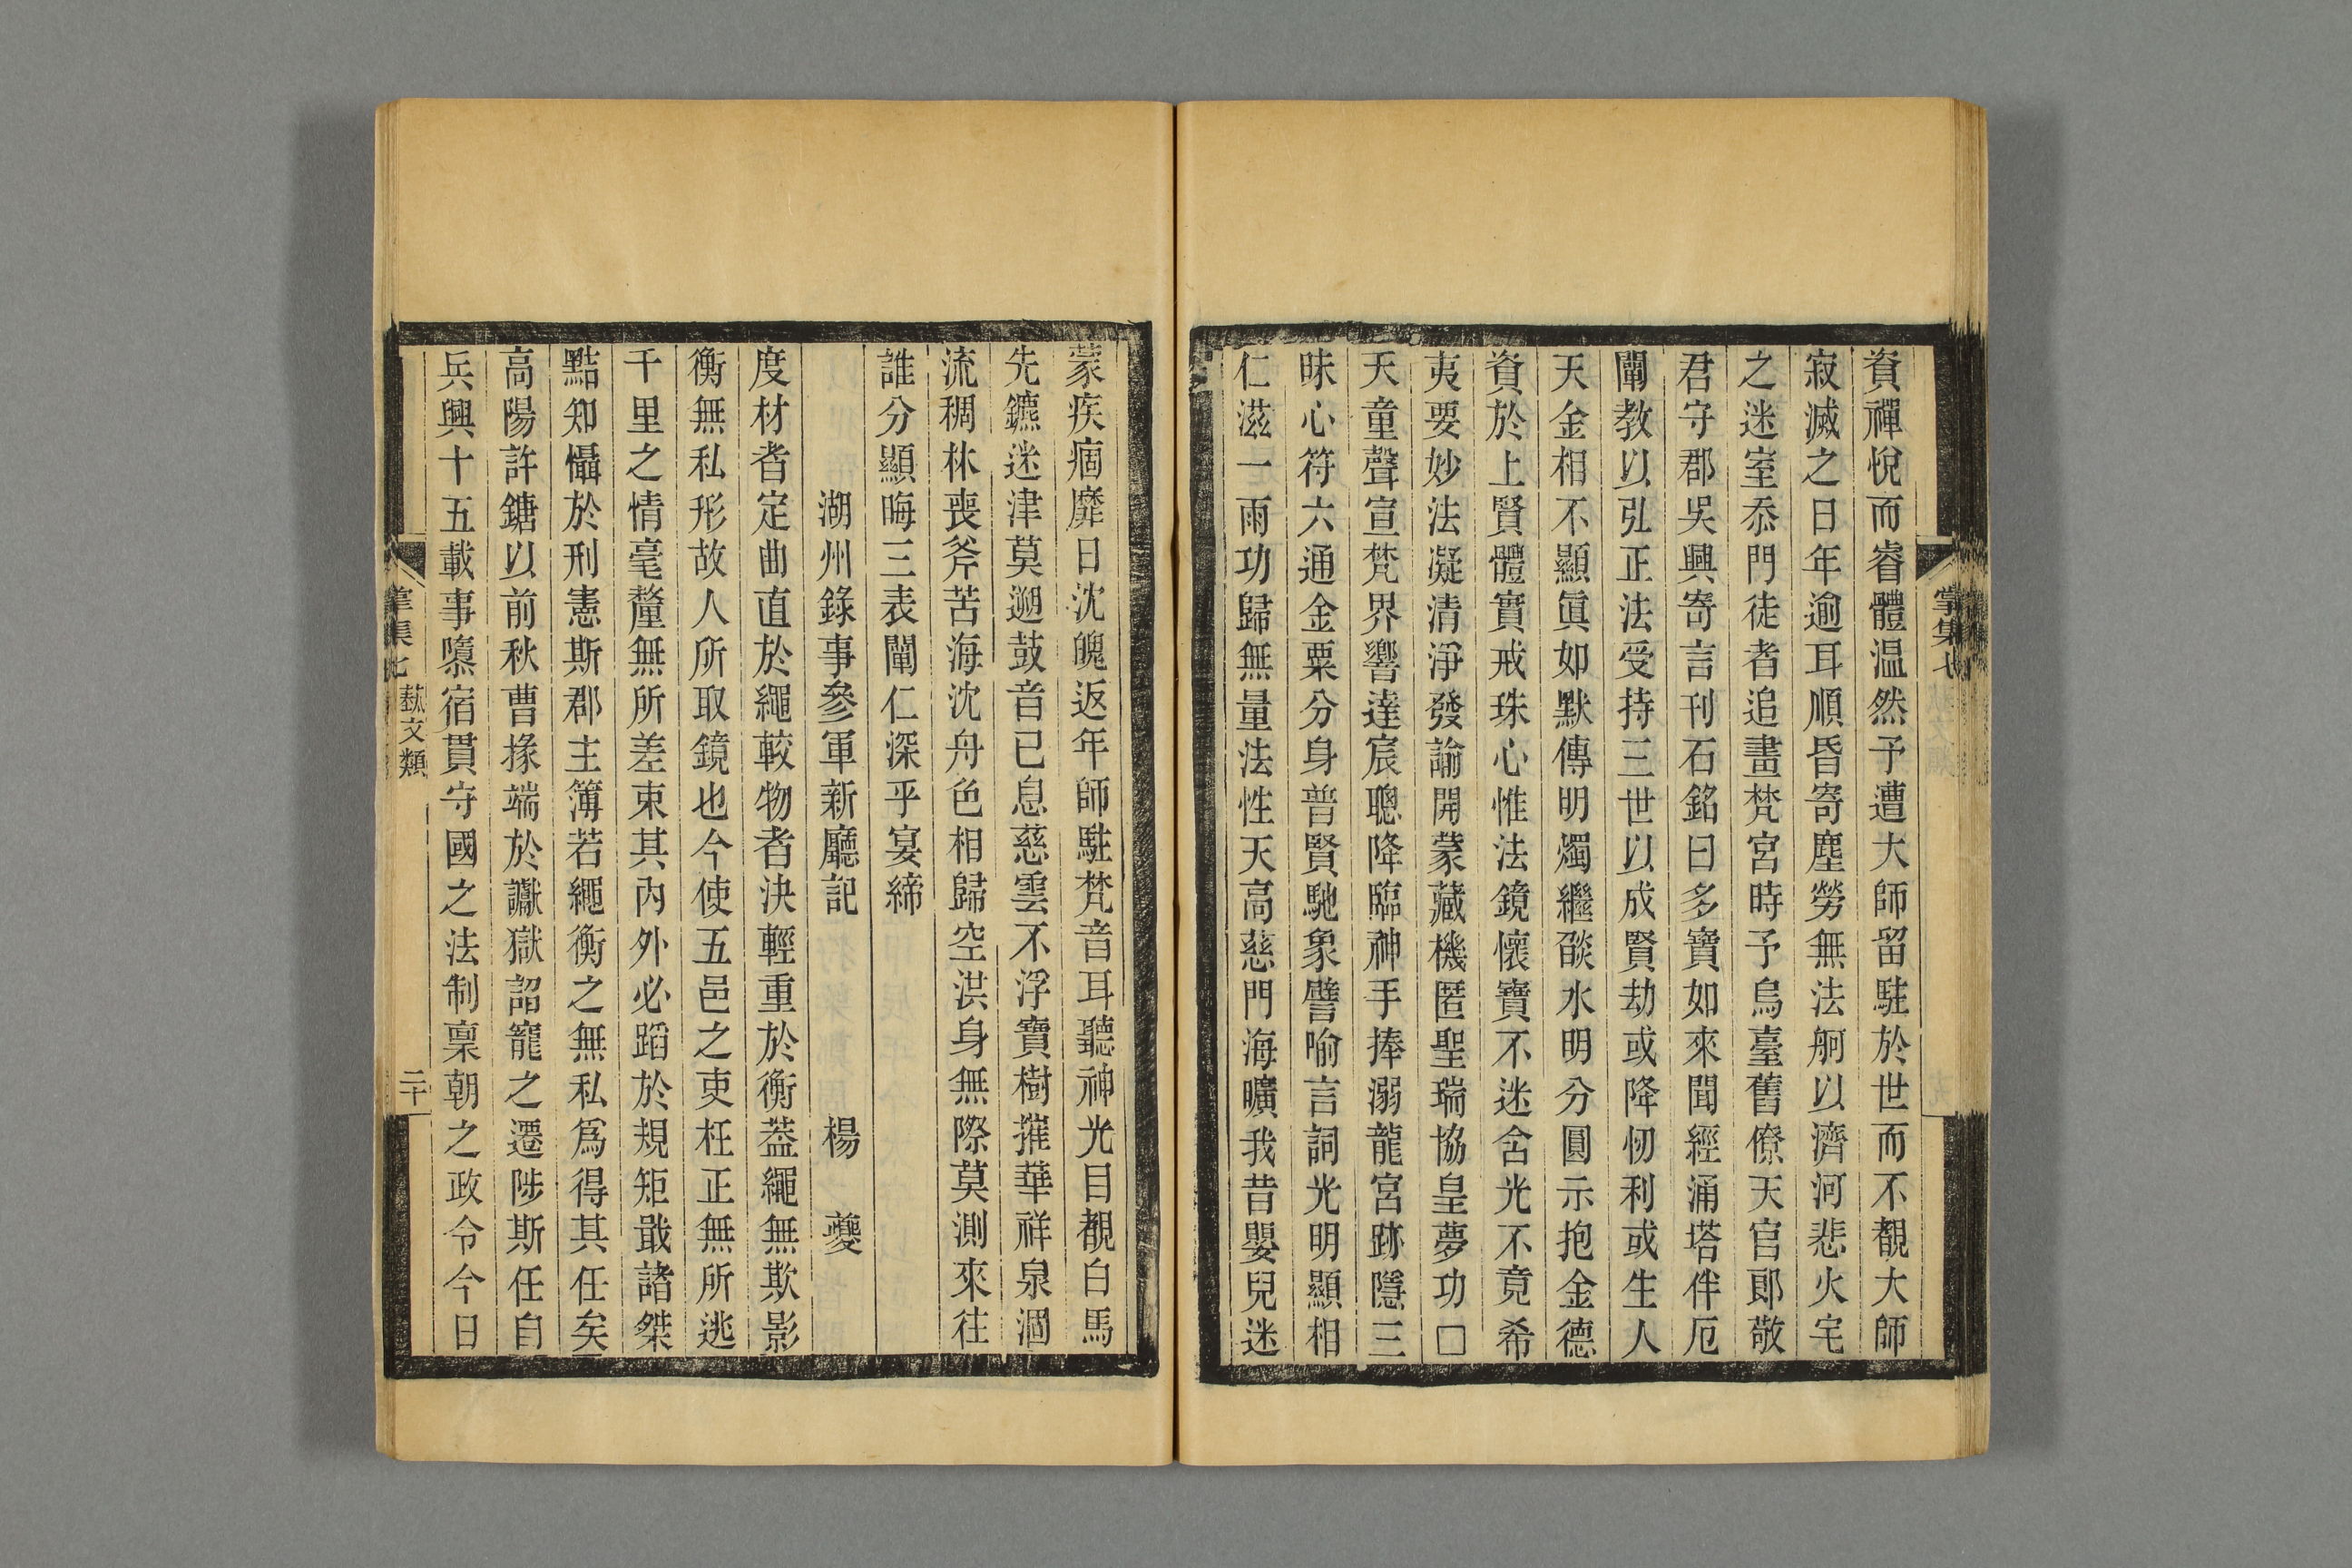 資禪悅而睿體温然予遭大師留駐於世而不覩大師
寂滅之日年逾耳順昏寄塵勞無法舸以濟河悲火宅
之迷室忝門徒者追晝梵宮時予烏臺舊僚天官郎敬
君守郡吳興寄言刊石銘曰多寶如來聞經涌塔伴厄
闡教以弘正法受持三世以成賢劫或降忉利或生人
天金相不顯眞如默傳明燭繼燄水明分圓示抱金德
資於上賢體實戒珠心惟法鏡懷寶不迷含光不竟希
夷要妙法凝清淨發諭開蒙藏機匿聖瑞協皇夢功□
天童聲宣梵界響達宸聰降臨神手捧溺龍宮跡隱三
昧心符六通金粟分身普賢馳象譬喻言詞光明顯相
仁滋一雨功歸無量法性天高慈門海曠我昔嬰兒迷
蒙疾痼靡日沈魄返年師駐梵音耳聽神光目覩白馬
先鑣迷津莫遡鼓音已息慈雲不浮寶樹摧華祥泉涸
流稠林喪斧苦海沈舟色相歸空洪身無際莫測來往
誰分顯晦三表闡仁深乎宴締
湖州錄事參軍新廳記 楊夔
度材者定曲直於繩較物者決輕重於衡葢繩無欺影
衡無私形故人所取鏡也今使五邑之吏枉正無所逃
千里之情毫釐無所差束其內外必蹈於規矩戢諸桀
黠知懾於刑憲斯郡主簿若繩衡之無私爲得其任矣
高陽許鏞以前秋曹掾端於讞獄詔寵之遷陟斯任自
兵興十五載事隳宿貫守國之法制稟朝之政令今日
掌集七
掌集七 蓺文類 二十